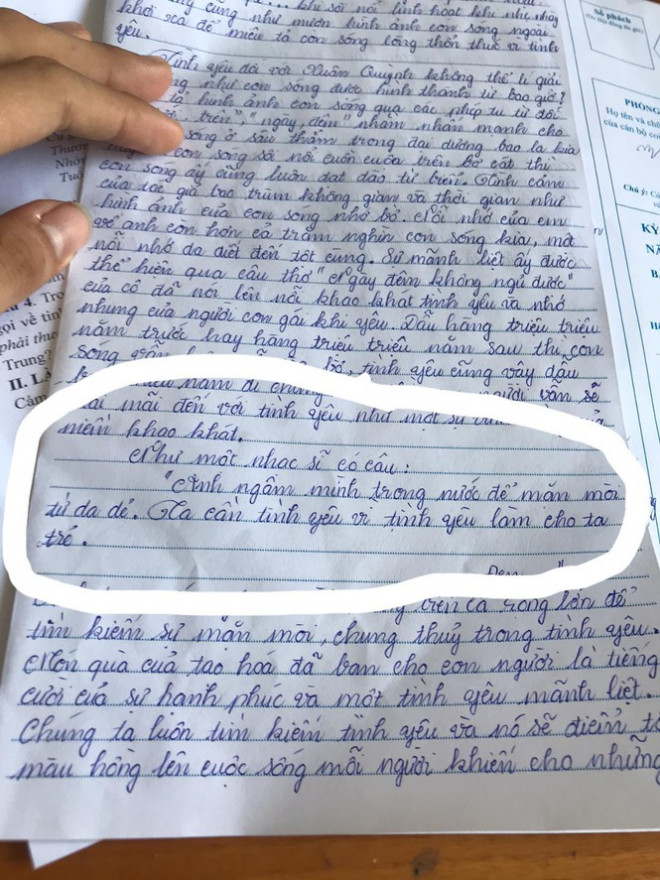 cũng như mượn hình ảnh con sóng ngoài
khơi xa để miêu tả con sóng lòng thổn thức vì tình
yêu.
Tình yêu đối với Xuân Quỳnh không thể lí giải
như con sóng được hình thành từ bao giờ?
tả hình ảnh con sóng qua các phép tu từ đối
trên", "ngày, đêm" nhằm nhấn mạnh cho
sóng ở sâu thẳm trong đại dương bao la kia
con sóng sô nổi cuồn cuộn trên bờ cát thì
con sóng ấy cũng luôn dạt dào từ trên. Tình cảm
của tác giả bao trùm không gian và thời gian như
hình ảnh của con sóng nhớ bờ. Nỗi nhớ của em
về anh còn hơn cả trăm nghìn con sóng kia, một
nỗi nhớ da diết đến tột cùng. Sự mãnh liệt ấy được
thể hiện qua câu thơ "Ngày đêm không ngủ được"
của cô đã nói lên nỗi khao khát tình yêu và nhớ
nhung của người con gái khi yêu. Dẫu hàng triệu triệu
năm trước hay hàng triệu triệu năm sau thì con
sóng vẫn bờ, tình yêu cũng vậy dẫu
năm đi chăng người vẫn sẽ
mãi đến với tình yêu như một sự
niềm khao khát.
Như một nhạc sĩ có câu:
"Anh ngâm mình trong nước để mặn mòi
từ da dẻ. Ta cần tình yêu vì tình yêu làm cho ta
trẻ.
Đen"
trên cả sông lớn để
tìm kiếm sự mặn mòi, chung thuỷ trong tình yêu.
Món quà của tạo hoá đã ban cho con người là tiếng
cười của sự hạnh phúc và một tình yêu mãnh liệt.
Chúng ta luôn tìm kiếm tình yêu và nó sẽ điểm tô
màu hồng lên cuộc sống mỗi người khiến cho những
Số phách
PHÒNG
Họ tên và chữ
của cán bộ co
Chú ý:
KỲ
NĂ
gọi về tình
phải thươ
Trung?
II. LÀ
Cảm